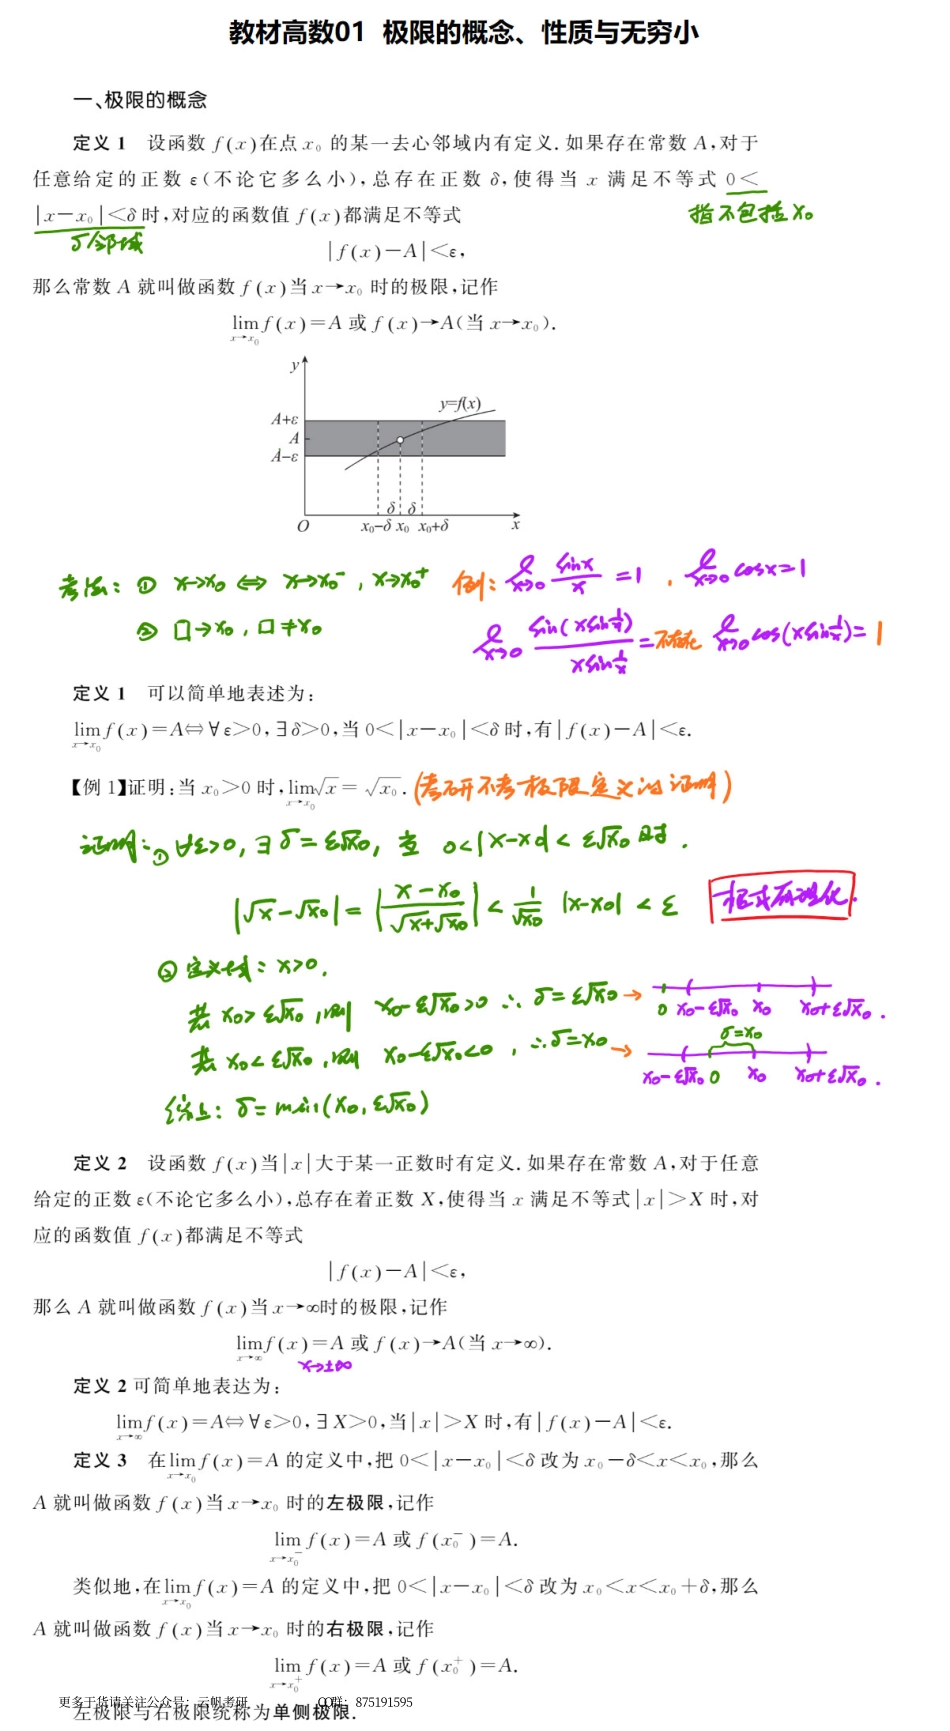 教材高数01 极限的概念、性质与无穷小
一、极限的概念
定义 1 设函数 f(x)在点 x₀ 的某一去心邻域内有定义. 如果存在常数 A,对于
任意给定的正数 ε(不论它多么小),总存在正数 δ,使得当 x 满足不等式 0<
|x-x₀|<δ时,对应的函数值 f(x)都满足不等式
指不包括x₀
δ邻域
|f(x)-A|<ε,
那么常数 A 就叫做函数 f(x)当 x→x₀ 时的极限,记作
lim f(x)=A 或 f(x)→A(当 x→x₀).
x→x₀
y
y=f(x)
A+ε
A
A-ε
δ δ
O x₀-δ x₀ x₀+δ x
考法: ① x→x₀ ⇔ x→x₀⁻, x→x₀⁺ 例: lim x→0 sinx/x =1 , lim x→0 cosx=1
② 口→x₀, 口≠x₀ lim x→0 sin(xsin 1/x)/(xsin 1/x) =不存在 lim x→0 cos(xsin 1/x)=1
定义 1 可以简单地表述为:
lim f(x)=A⇔∀ε>0,∃δ>0,当 0<|x-x₀|<δ时,有|f(x)-A|<ε.
x→x₀
【例 1】证明:当 x₀>0 时,lim√x = √x₀. (考研不考极限定义的证明)
x→x₀
证明: ① ∀ε>0, ∃δ=ε√x₀, 当 0<|x-x₀|<ε√x₀时.
|√x-√x₀|=|(x-x₀)/(√x+√x₀)|<1/√x₀ |x-x₀|<ε 根式有理化.
② 定义域: x>0.
若 x₀>ε√x₀,则 x₀-ε√x₀>0 ∴ δ=ε√x₀ → 0 x₀-ε√x₀ x₀ x₀+ε√x₀.
若 x₀<ε√x₀,则 x₀-ε√x₀<0, ∴δ=x₀ → δ=x₀
x₀-ε√x₀ 0 x₀ x₀+ε√x₀.
综上: δ=min(x₀,ε√x₀)
定义 2 设函数 f(x)当|x|大于某一正数时有定义. 如果存在常数 A,对于任意
给定的正数 ε(不论它多么小),总存在着正数 X,使得当 x 满足不等式|x|>X 时,对
应的函数值 f(x)都满足不等式
|f(x)-A|<ε,
那么 A 就叫做函数 f(x)当 x→∞时的极限,记作
lim f(x)=A 或 f(x)→A(当 x→∞).
x→∞
x→±∞
定义 2 可简单地表达为:
lim f(x)=A⇔∀ε>0,∃X>0,当|x|>X 时,有|f(x)-A|<ε.
x→∞
定义 3 在lim f(x)=A 的定义中,把 0<|x-x₀|<δ改为 x₀-δ<x<x₀,那么
x→x₀
A 就叫做函数 f(x)当 x→x₀ 时的左极限,记作
lim f(x)=A 或 f(x₀⁻)=A.
x→x₀⁻
类似地,在lim f(x)=A 的定义中,把 0<|x-x₀|<δ改为 x₀<x<x₀+δ,那么
x→x₀
A 就叫做函数 f(x)当 x→x₀ 时的右极限,记作
lim f(x)=A 或 f(x₀⁺)=A.
x→x₀⁺
更多干货请关注公众号：云帆考研 QQ群：875191595
左极限与右极限统称为单侧极限.